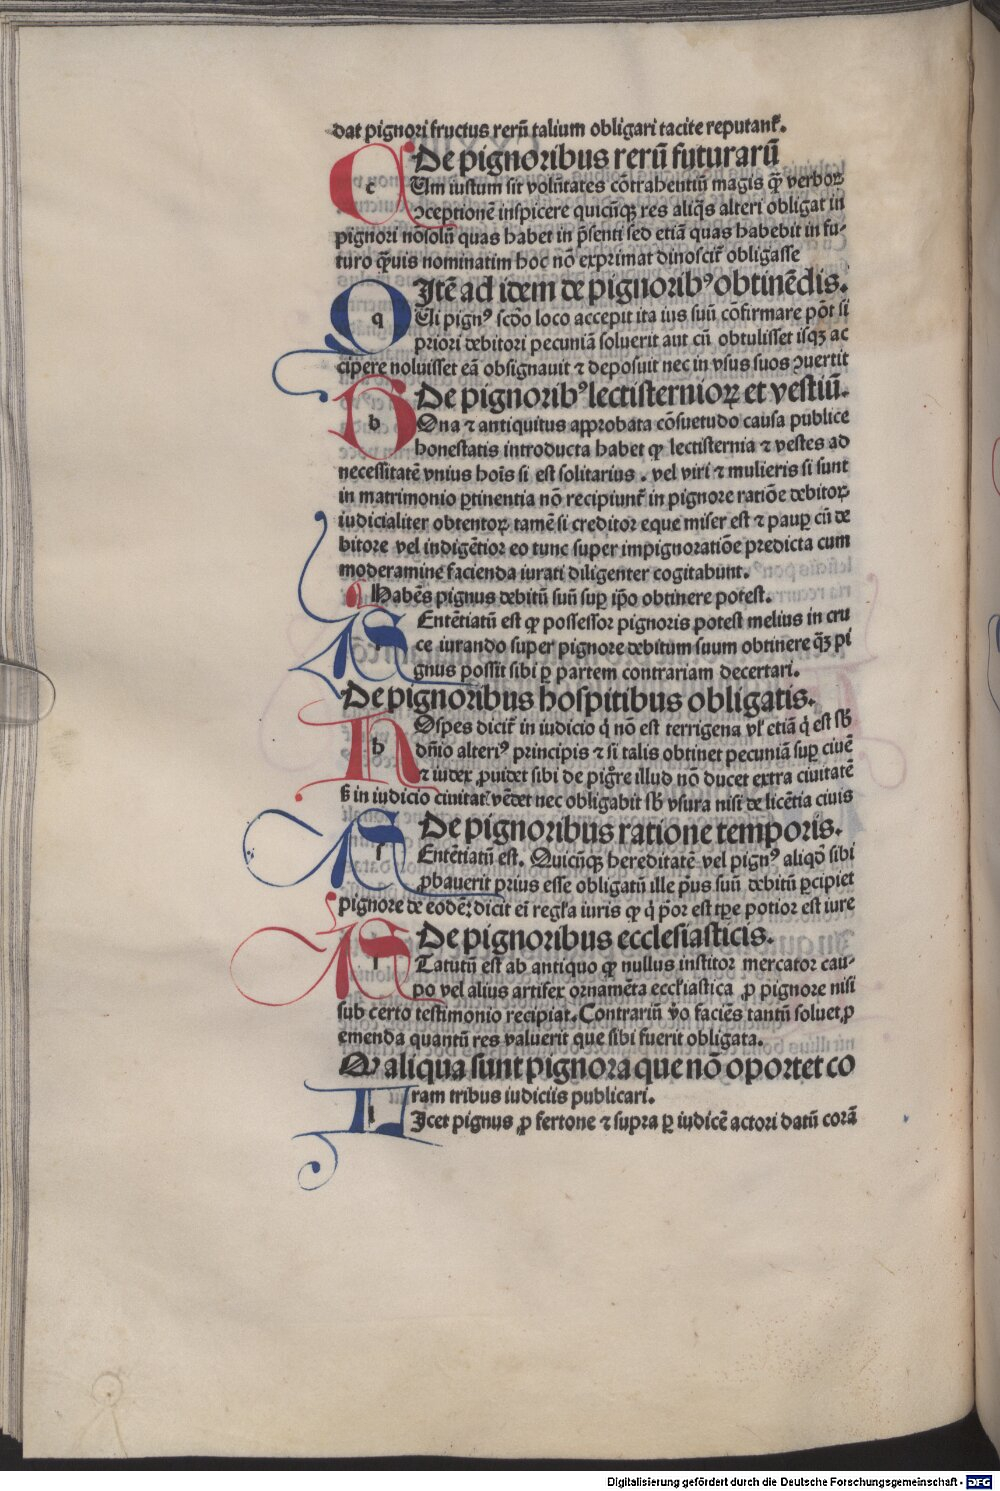 dat pignori fructus rerū talium obligari tacite reputant᷑.
De pignoribus rerū futurarū
c Um iustum sit volūtates cōtrahentiū magis qꝫ verboꝝ
ↄceptionē inspicere quicūqꝫ res aliq̄s alteri obligat in
pignori nōsolū quas habet in p̄senti sed etiā quas habebit in fu-
turo q̄uis nominatim hoc nō exprimat dinoscit᷑ obligasse
Itē ad idem de pignoribꝰ obtinēdis.
q Ui pignꝰ scōo loco accepit ita ius suū cōfirmare pōt si
priori debitori pecuniā soluerit aut cū obtulisset isqꝫ ac
cipere noluisset eā obsignauit ⁊ deposuit nec in vsus suos ↄuertit
De pignoribꝰ lectisternioꝝ et vestiū.
b Ona ⁊ antiquitus approbata cōsuetudo causa publice
honestatis introducta habet ꝙ lectisternia ⁊ vestes ad
necessitatē vnius hoīs si est solitarius. vel viri ⁊ mulieris si sunt
in matrimonio ꝑtinentia nō recipiunt᷑ in pignore ratiōe debitoꝝ
iudicialiter obtentoꝝ tamē si creditor eque miser est ⁊ pauꝑ cū de
bitore vel indigētior eo tunc super impignoratiōe predicta cum
moderamine facienda iurati diligenter cogitabunt.
Habēs pignus debitū suū suꝑ ip̄o obtinere potest.
Entētiatū est ꝙ possessor pignoris potest melius in cru
ce iurando super pignore debitum suum obtinere q̄ꝫ pi
gnus possit sibi ꝑ partem contrariam decertari.
De pignoribus hospitibus obligatis.
h Ospes dicit᷑ in iudicio q̇ nō est terrigena vl̓ etiā q̇ est sb̄
dn̄io alteriꝰ principis ⁊ si talis obtinet pecuniā suꝑ ciuē
⁊ iudex ꝓuidet sibi de pig̅re illud nō ducet extra ciuitatē
ß in iudicio ciuitat᷑ vēdet nec obligabit sb̄ vsura nisi de licētia ciuis
De pignoribus ratione temporis.
Entētiatū est. Quicūqꝫ hereditatē vel pignꝰ aliqd̄ sibi
ꝓbauerit prius esse obligatū ille p̄us suū debitū ꝑcipiet
pignore de eodē: dicit ei regl̓a iuris ꝙ q̇ p̄or est tp̄e potior est iure
De pignoribus ecclesiasticis.
Tatutū est ab antiquo ꝙ nullus institor mercator cau-
po vel alius artifex ornamēta eccl̓iastica ꝓ pignore nisi
sub certo testimonio recipiat. Contrariū v̄o faciēs tantū soluet ꝓ
emenda quantū res valuerit que sibi fuerit obligata.
Q aliqua sunt pignora que nō oportet co
ram tribus iudiciis publicari.
l Icet pignus ꝓ fertone ⁊ supra ꝑ iudicē actori datū corā
Digitalisierung gefördert durch die Deutsche Forschungsgemeinschaft - DFG